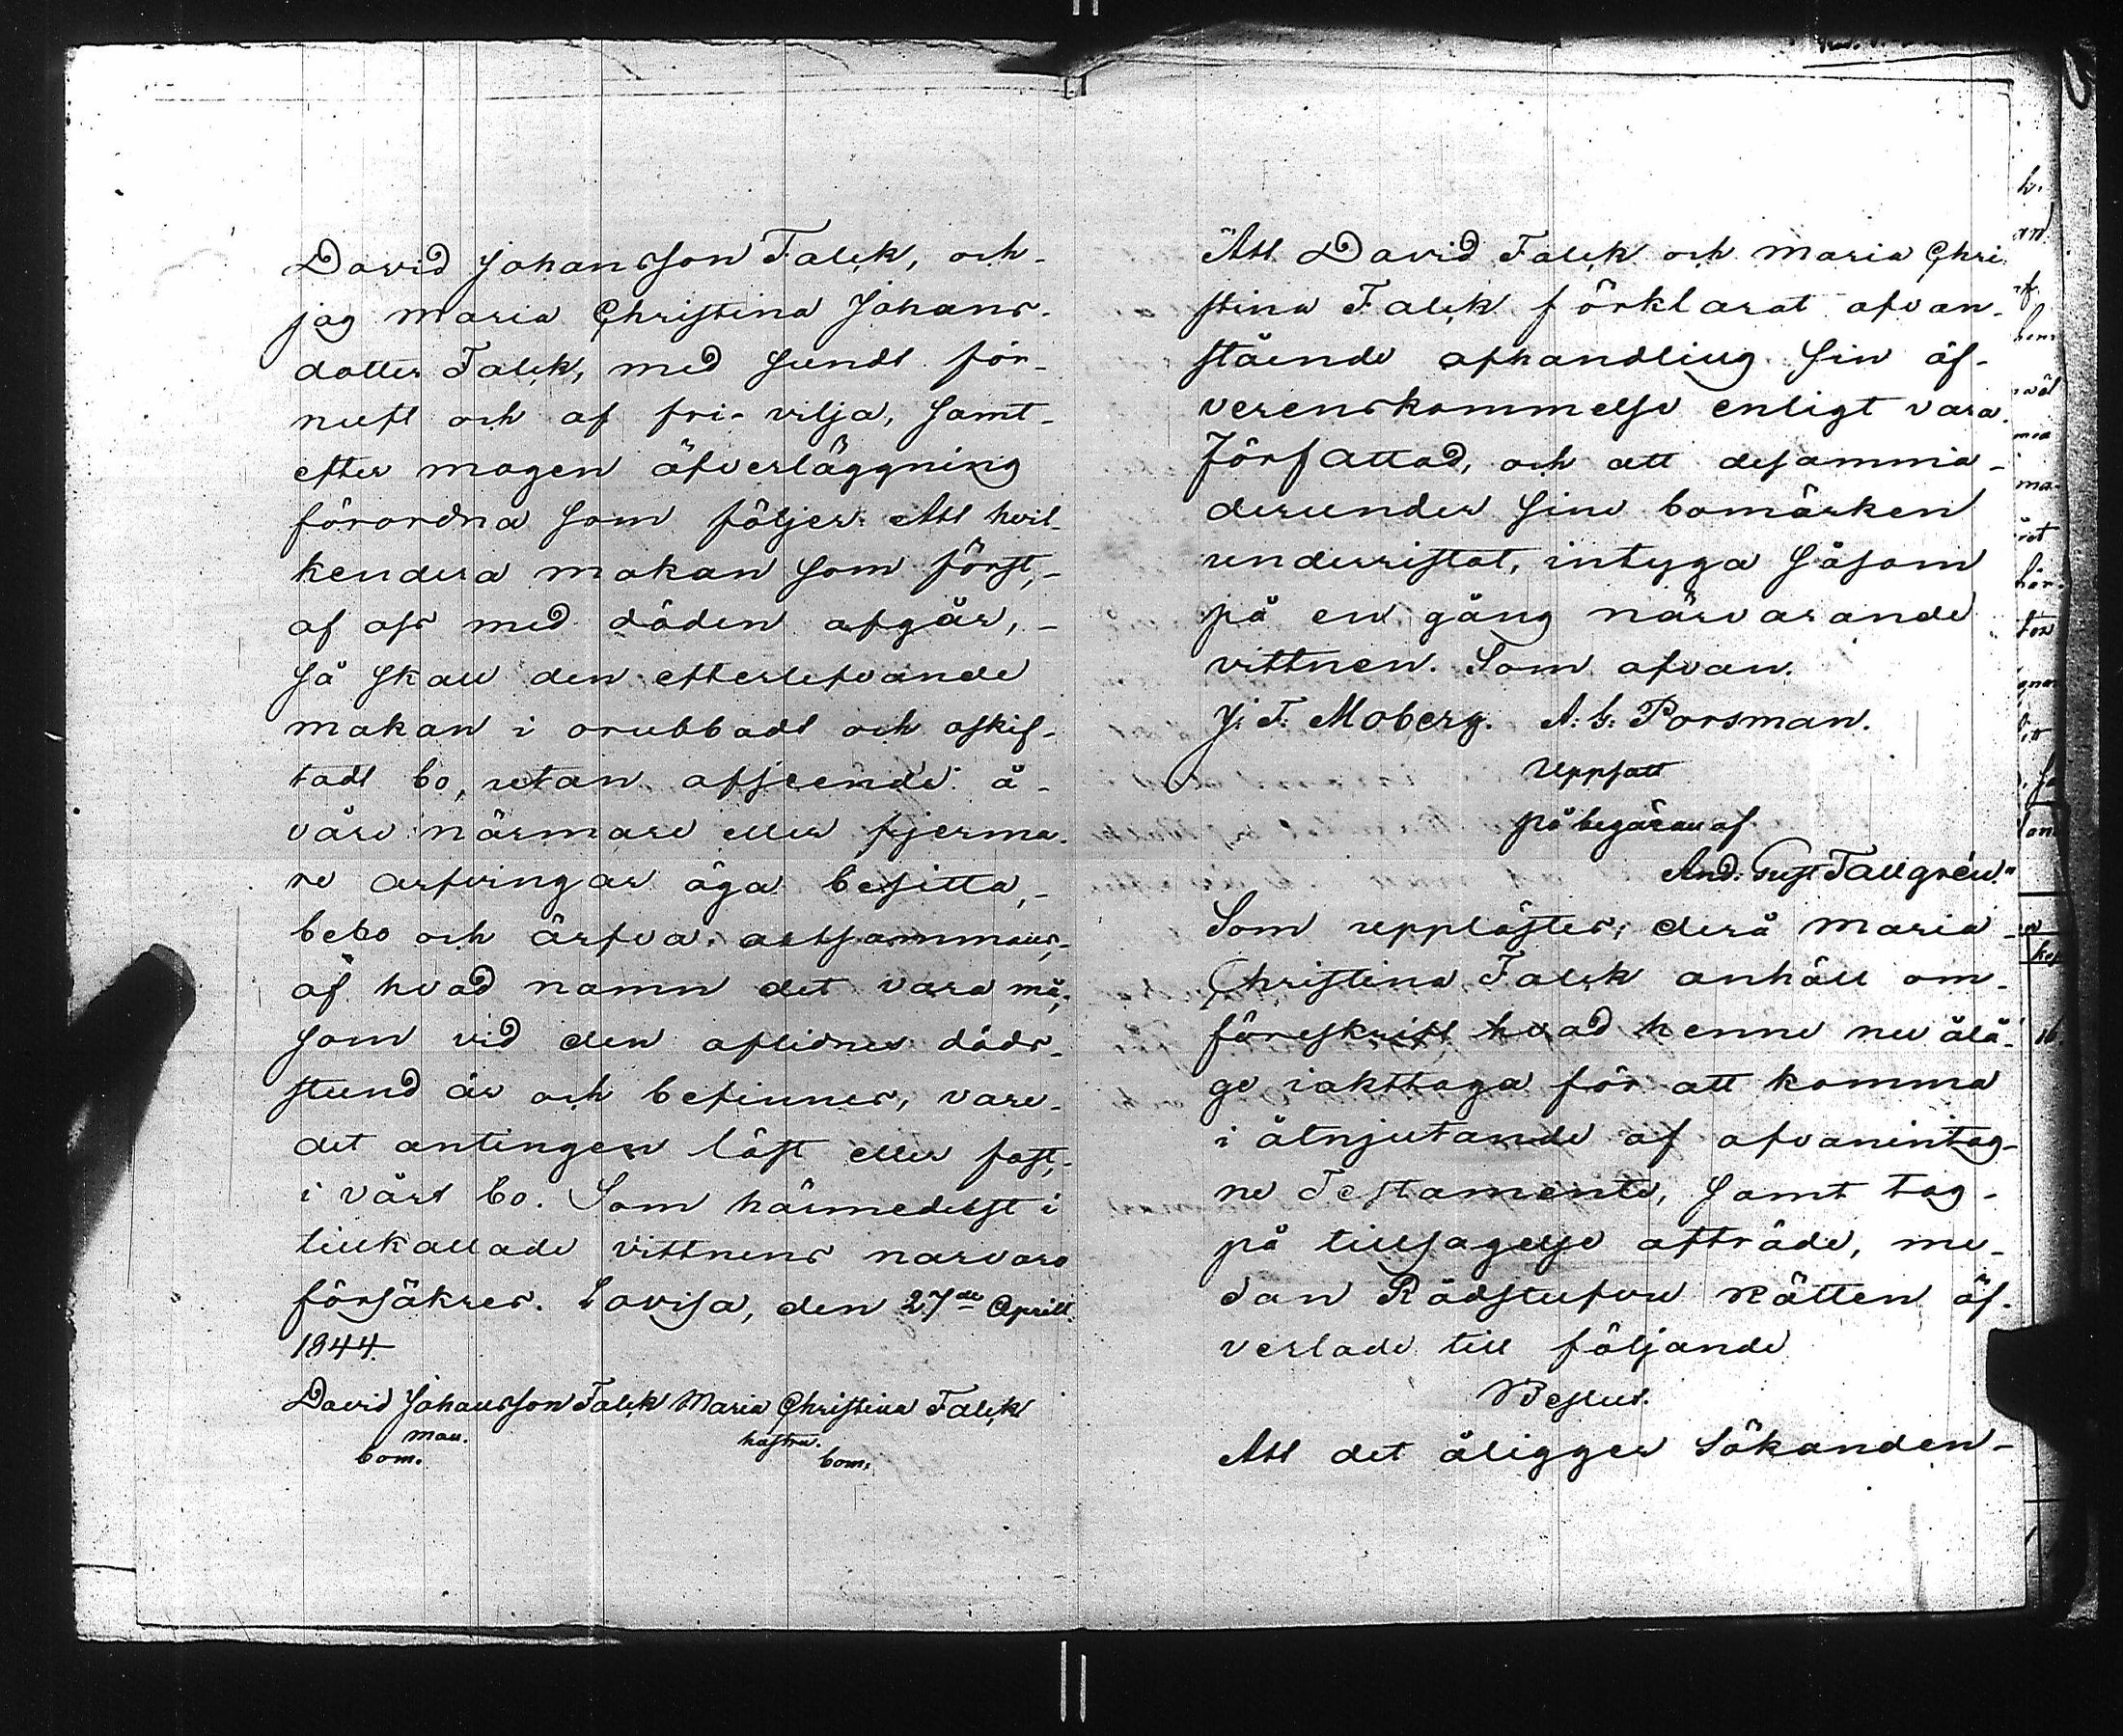 David Johansson Falck, och
jag Maria Christina Johans-
dotter Falck, med sundt för-
nuft och af fri-vilja, samt
efter mogen öfverläggning
förordna som följer: Att hvil-
kendera makan som först,
af oss med döden afgår, -
så skall den efterlefvande
makan i orubbadt och oskif-
tadt bo, utan afseende å
våre närmare eller fjerma-
re arfvingar äga besitta, -
bebo och ärfva altsammans,
af hvad namn det vara må,
som vid den aflidnes döds-
stund är och befinnes, vare
det antingen löst eller fast,
i vårt bo. Som härmedelst i
tillkallade vittnens narvaro
försäkres. Lovisa, den 27de Aprill
1844.
David Johansson Falck Maria Christina Falck
man. hustru.
bom. bom.
Att David Falck och Maria Chri
stina Falck förklarat ofvan-
stående afhandling sin öf-
verenskommelse enligt vara
författad, och att desamma
derunder sine bomärken
underristat, intyga såsom
på en gång närvarande
vittnen. Som ofvan.
J: F: Moberg. A: G: Forsman.
Uppsatt
på begäran af
And: Gust Tallgrén."
Som upplästes; derå Maria
Christina Falck anhåll om
föreskrift hvad henne nu ålå-
ge iakttaga för att komma
i åtnjutande af ofvanintag-
ne Testamente, samt tog
på tillsagelse afträde, me-
dan Rådstufvu Rätten öf-
verlade till följande
Beslut.
Att det åligger Sökanden